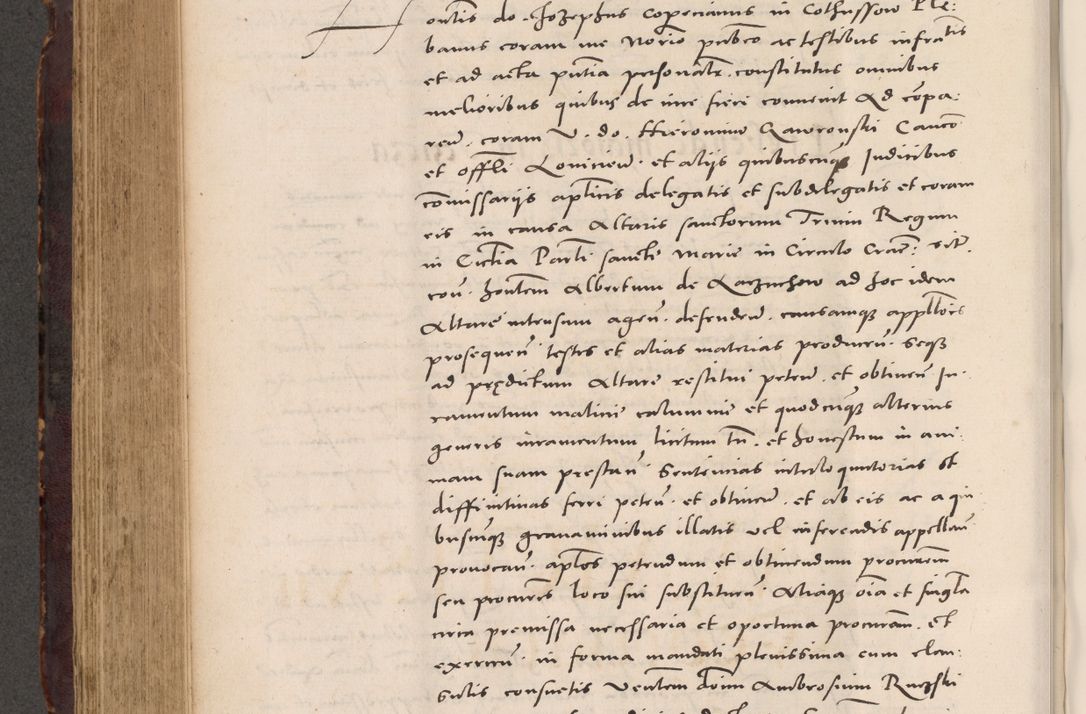 do Jozephus Copecianus in Cothussow Ple:
banus coram me Norio pubco ac testibus infratis
et ad acta pntia personalr constitutus omnibus
melioribus quibus de iure fieri convenit Ad compa:
ren. coram V. do. Hieronimo Gawronski Canco
et offli Lovicien. et alijs quibuscunq Judicibus
comissarijs aplicis delegatis et subdelegatis et coram
eis in causa Altaris sanctorum Trium Regum
in Ecclia Parli sancte Marie in Circulo Crac:
con. hontem Albertum de ad hoc idem
Altare intrusum agen. defenden. causamq appllois
prosequen testes et alias materias producen. Seq
ad prędictum Altare restitui peten. et obtinen Ju:
ramentum malicie calumnie et quodcunq alterius
generis iuramentum licitum tn. et honestum in ani:
mam suam prestan. Sentencias interloquutorias et
diffinitivas ferri peten. et obtinen. et ab eis ac a qui
busvisq gravaminibus illatis vel inferendis appellan
provocan. aplos petendum et obtinendum procurem
seu procures loco sui substituen. Aliaq oia et singla
circa premissa necessaria et oportuna procuram. et
exercen. in forma mandati plenissima cum clau:
sulis consuetis Ventem dnm Ambrosium